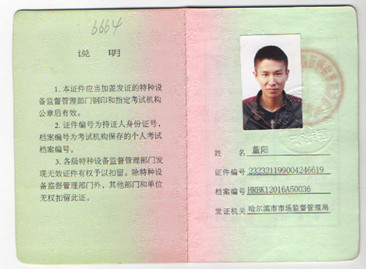 6664
说 明
1. 本证件应当加盖发证的特种设
备监督管理部门钢印和指定考试机构
公章后有效。
2. 证件编号为持证人身份证号，
档案编号为考试机构保存的个人考试
档案编号。
3. 各级特种设备监督管理部门发
现无效证件有权予以扣留。除特种设
备监督管理部门外，其他部门和单位
无权扣留此证。
姓 名 蓝阳
证件编号 232321199004246619
档案编号 HRBK12016A50036
发证机关 哈尔滨市市场监督管理局